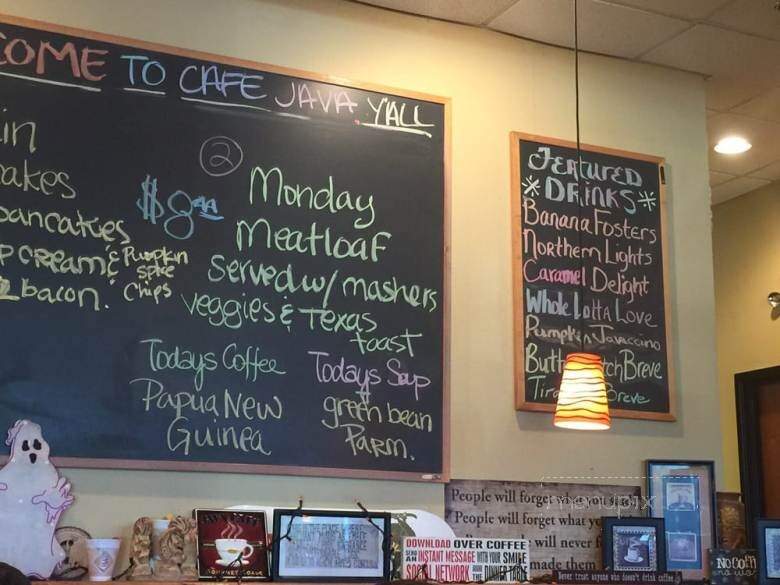 COME TO CAFE JAVA Y'ALL
in
akes
pancakes
P CREAM & Pumpkin
spice
bacon. chips
2
$8
Monday
Meatloaf
served w/ mashers
veggies & Texas
toast
Todays Coffee
Papua New
Guinea
Todays Soup
green bean
Parm.
Featured
DRINKS
Banana Fosters
Northern Lights
Caramel Delight
Whole Lotta Love
Pumpkin Javaccino
Butt tch Breve
Tira Breve
menupix
People will forget what you
People will forget what yo
will never f
made them
DOWNLOAD OVER COFFEE
SEND AN INSTANT MESSAGE WITH YOUR SMILE
SOCIAL NETWORK
Never trust anyone who doesn't drink coffee